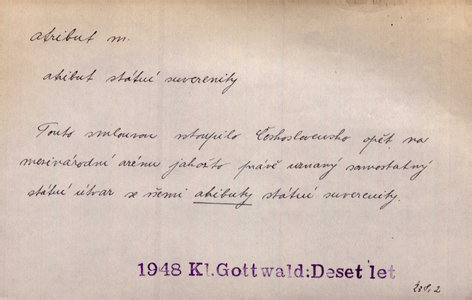 atribut m.
atribut státní suverenity
Touto smlouvou vstoupilo Československo opět na
mezinárodní arénu jakožto právě uznaný samostatný
státní útvar se všemi atributy státní suverenity.
1948 Kl.Gottwald:Deset let